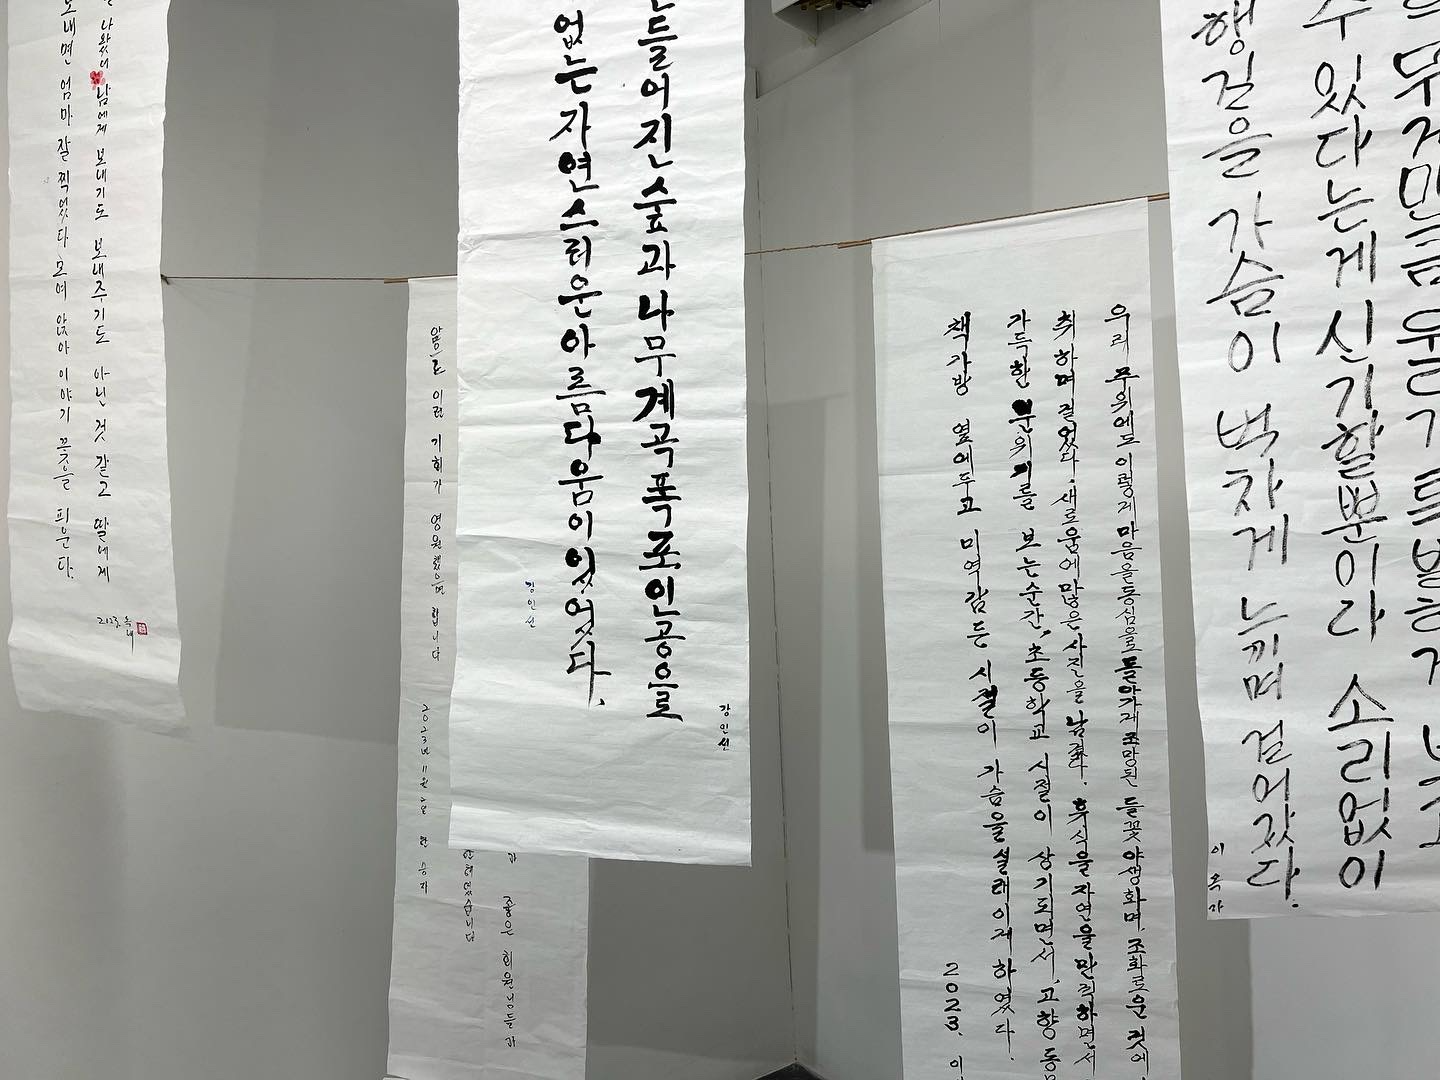 나왔어 남에게 보내기도 보내주기도 아닌 것 같고 딸에게
보내면 엄마 잘 찍었다 모여 앉아 이야기 꽃을 피운다.
2023. 옥내
좋은 회원님들과
하였습니다
앞으로 이런 기회가 영원했으면 합니다
2023년 11월
들어진 숲과 나무 계곡 폭포 인공으로
없는 자연스러운 아름다움이 있었다.
강인선
강인선
우리 무위에도 이렇게 마음을 동심으로 돌아가게 조망된 들꽃 야생화며, 조화로운 것에
취하며 걸었다. 새로움에 많은 사진을 남겼다. 휴식을 자연을 만끽하면서
가득한 분위기를 보는순간, 초등학교 시절이 상기도면서, 고향 동
책가방 옆에두고 미역감든 시절이 가슴을 설래이게 하였다.
2023. 이
무거만큼 울기 특별하게
수 있다는게 신기할뿐이라 소리없이
행길을 가슴이 벅차게 느끼며 걸어갔다.
이옥자